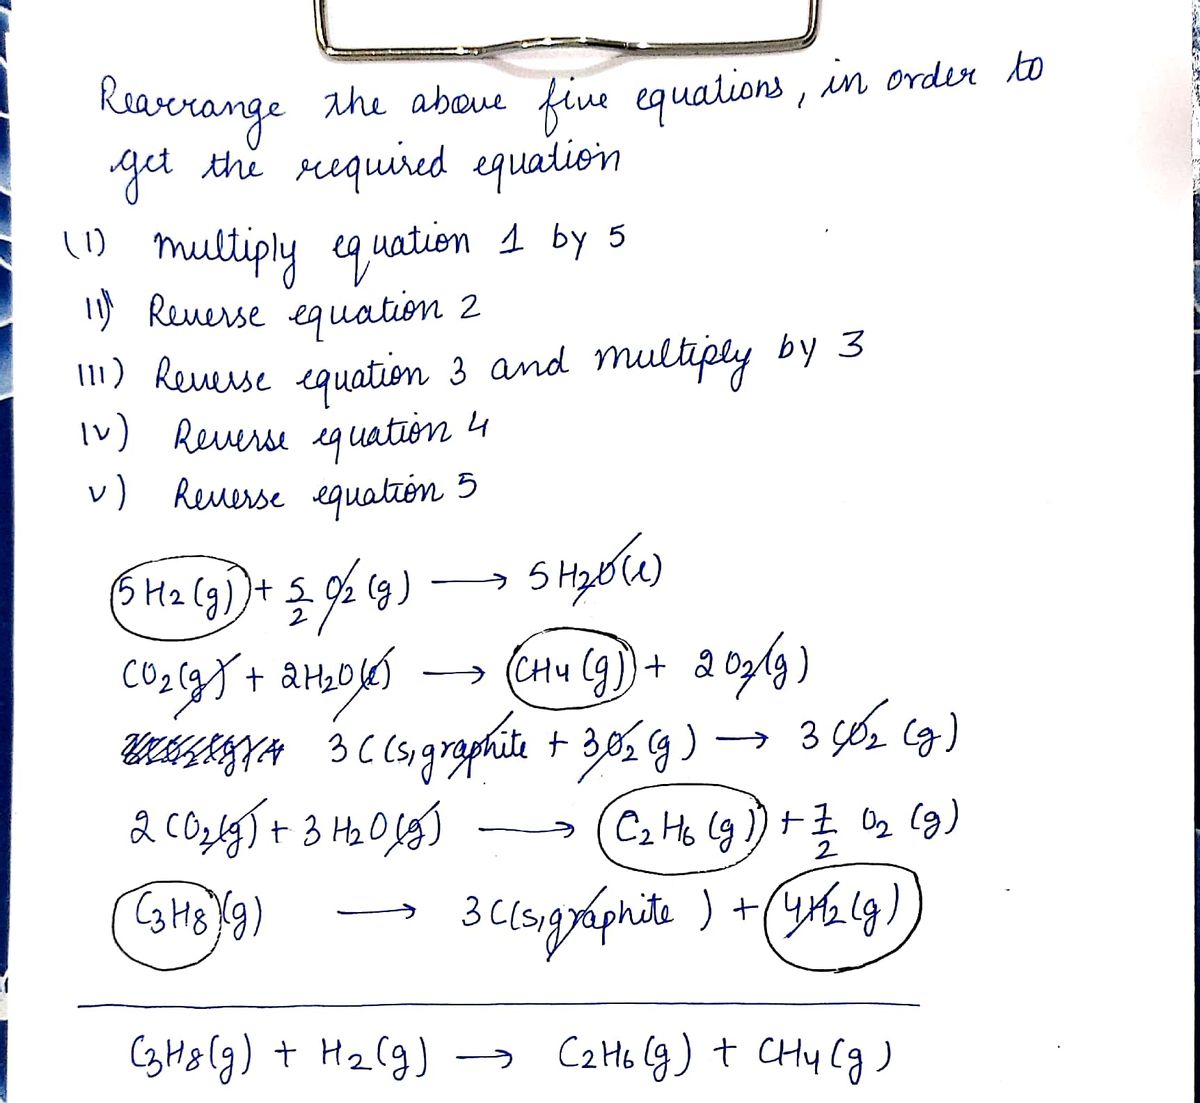 Rearrange the above five equations, in order to
get the required equation
(1) multiply equation 1 by 5
11) Reverse equation 2
111) Reverse equation 3 and multiply by 3
1v) Reverse equation 4
v) Reverse equation 5
5 H2 (g) + 5/2 O2 (g) → 5 H2O (l)
CO2 (g) + 2H2O (l) → CH4 (g) + 2 O2 (g)
3 C (s, graphite + 3O2 (g) → 3 CO2 (g)
2 CO2 (g) + 3 H2O (g) → C2 H6 (g) + 7/2 O2 (g)
C3 H8 (g) → 3 C (s, graphite ) + 4 H2 (g)
C3H8 (g) + H2 (g) → C2 H6 (g) + CH4 (g)